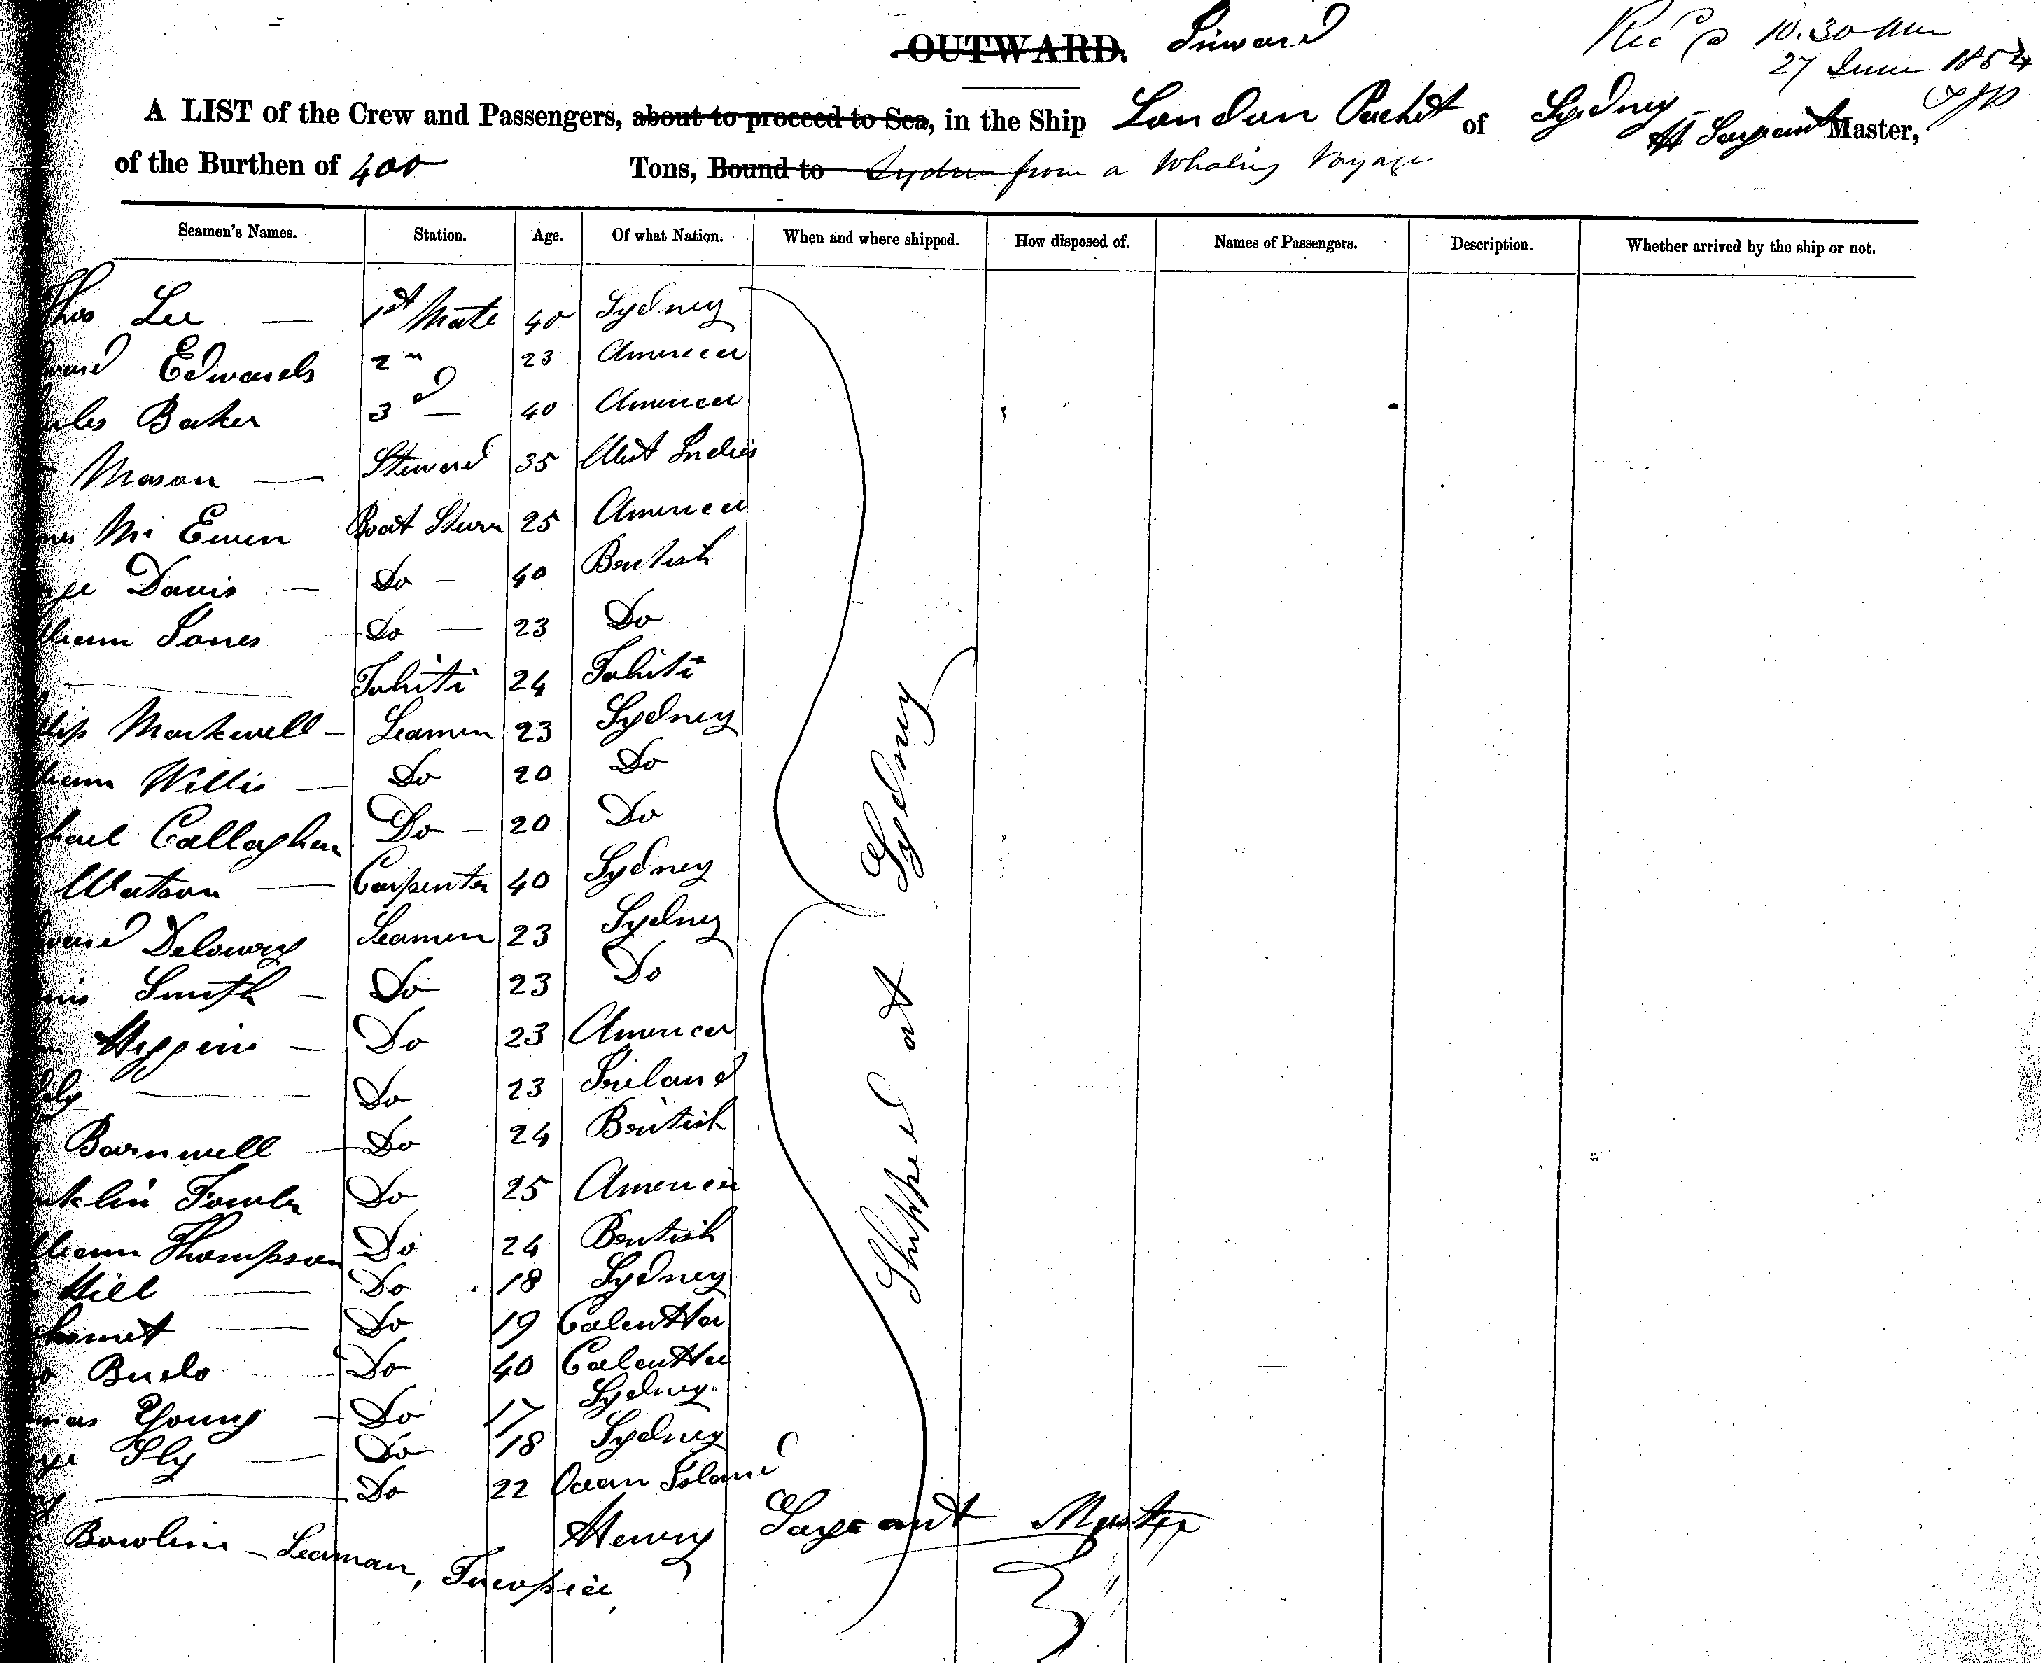 OUTWARD. Inward
Recd 10.30 am
27 June 1854
A LIST of the Crew and Passengers, about to proceed to Sea, in the Ship London Packet of Sydney H Sargeant Master,
of the Burthen of 400 Tons, Bound to Sydney from a Whaling Voyage
Seamen's Names. Station. Age. Of what Nation. When and where shipped. How disposed of. Names of Passengers. Description. Whether arrived by the ship or not.
Lee — 1st Mate 40 Sydney
Edwards 2nd 23 America
Baker 3d — 40 America
Mason — Steward 35 West Indies
Mc Ewen Boat Steer 25 America
Davis — Do — 40 British
Jones Do — 23 Do
Tahiti 24 Tahiti
Markwell — Seaman 23 Sydney
Willis — Do 20 Do
Callaghan Do — 20 Do
Watson — Carpenter 40 Sydney
Delowry Seaman 23 Sydney
Smith — Do 23 Do
Higgins — Do 23 America
Do 23 Ireland
Barnwell — Do 24 British
Fowler Do 25 America
Thompson Do 24 British
Hill — Do 18 Sydney
Do 19 Calcutta
Do 40 Calcutta
Young — Do 17 Sydney
Sly — Do 18 Sydney
Do 22 Ocean Island
Bowline — Seaman, Tucopia,
Shipped at Sydney
Henry Sargeant Master